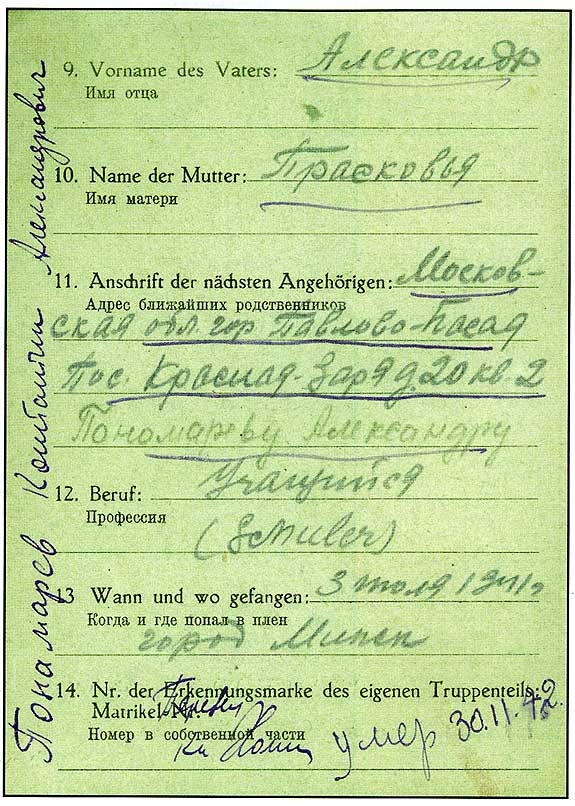 9. Vorname des Vaters: Александр
Имя отца
10. Name der Mutter: Прасковья
Имя матери
11. Anschrift der nächsten Angehörigen: Москов-
Адрес ближайших родственников
ская обл. гор Павлово-Посад
Пос. Красная-Заря д 20 кв-2
Пономареву Александру
12. Beruf: Учащийся
Профессия
(Schuler)
13 Wann und wo gefangen: 3 июля 1941г
Когда и где попал в плен
город Минск
14. Nr. der Erkennungsmarke des eigenen Truppenteils:
Matrikel Nr.:
Номер в собственной части
умер 30.11.42.
Понамарев Констанин Александрович